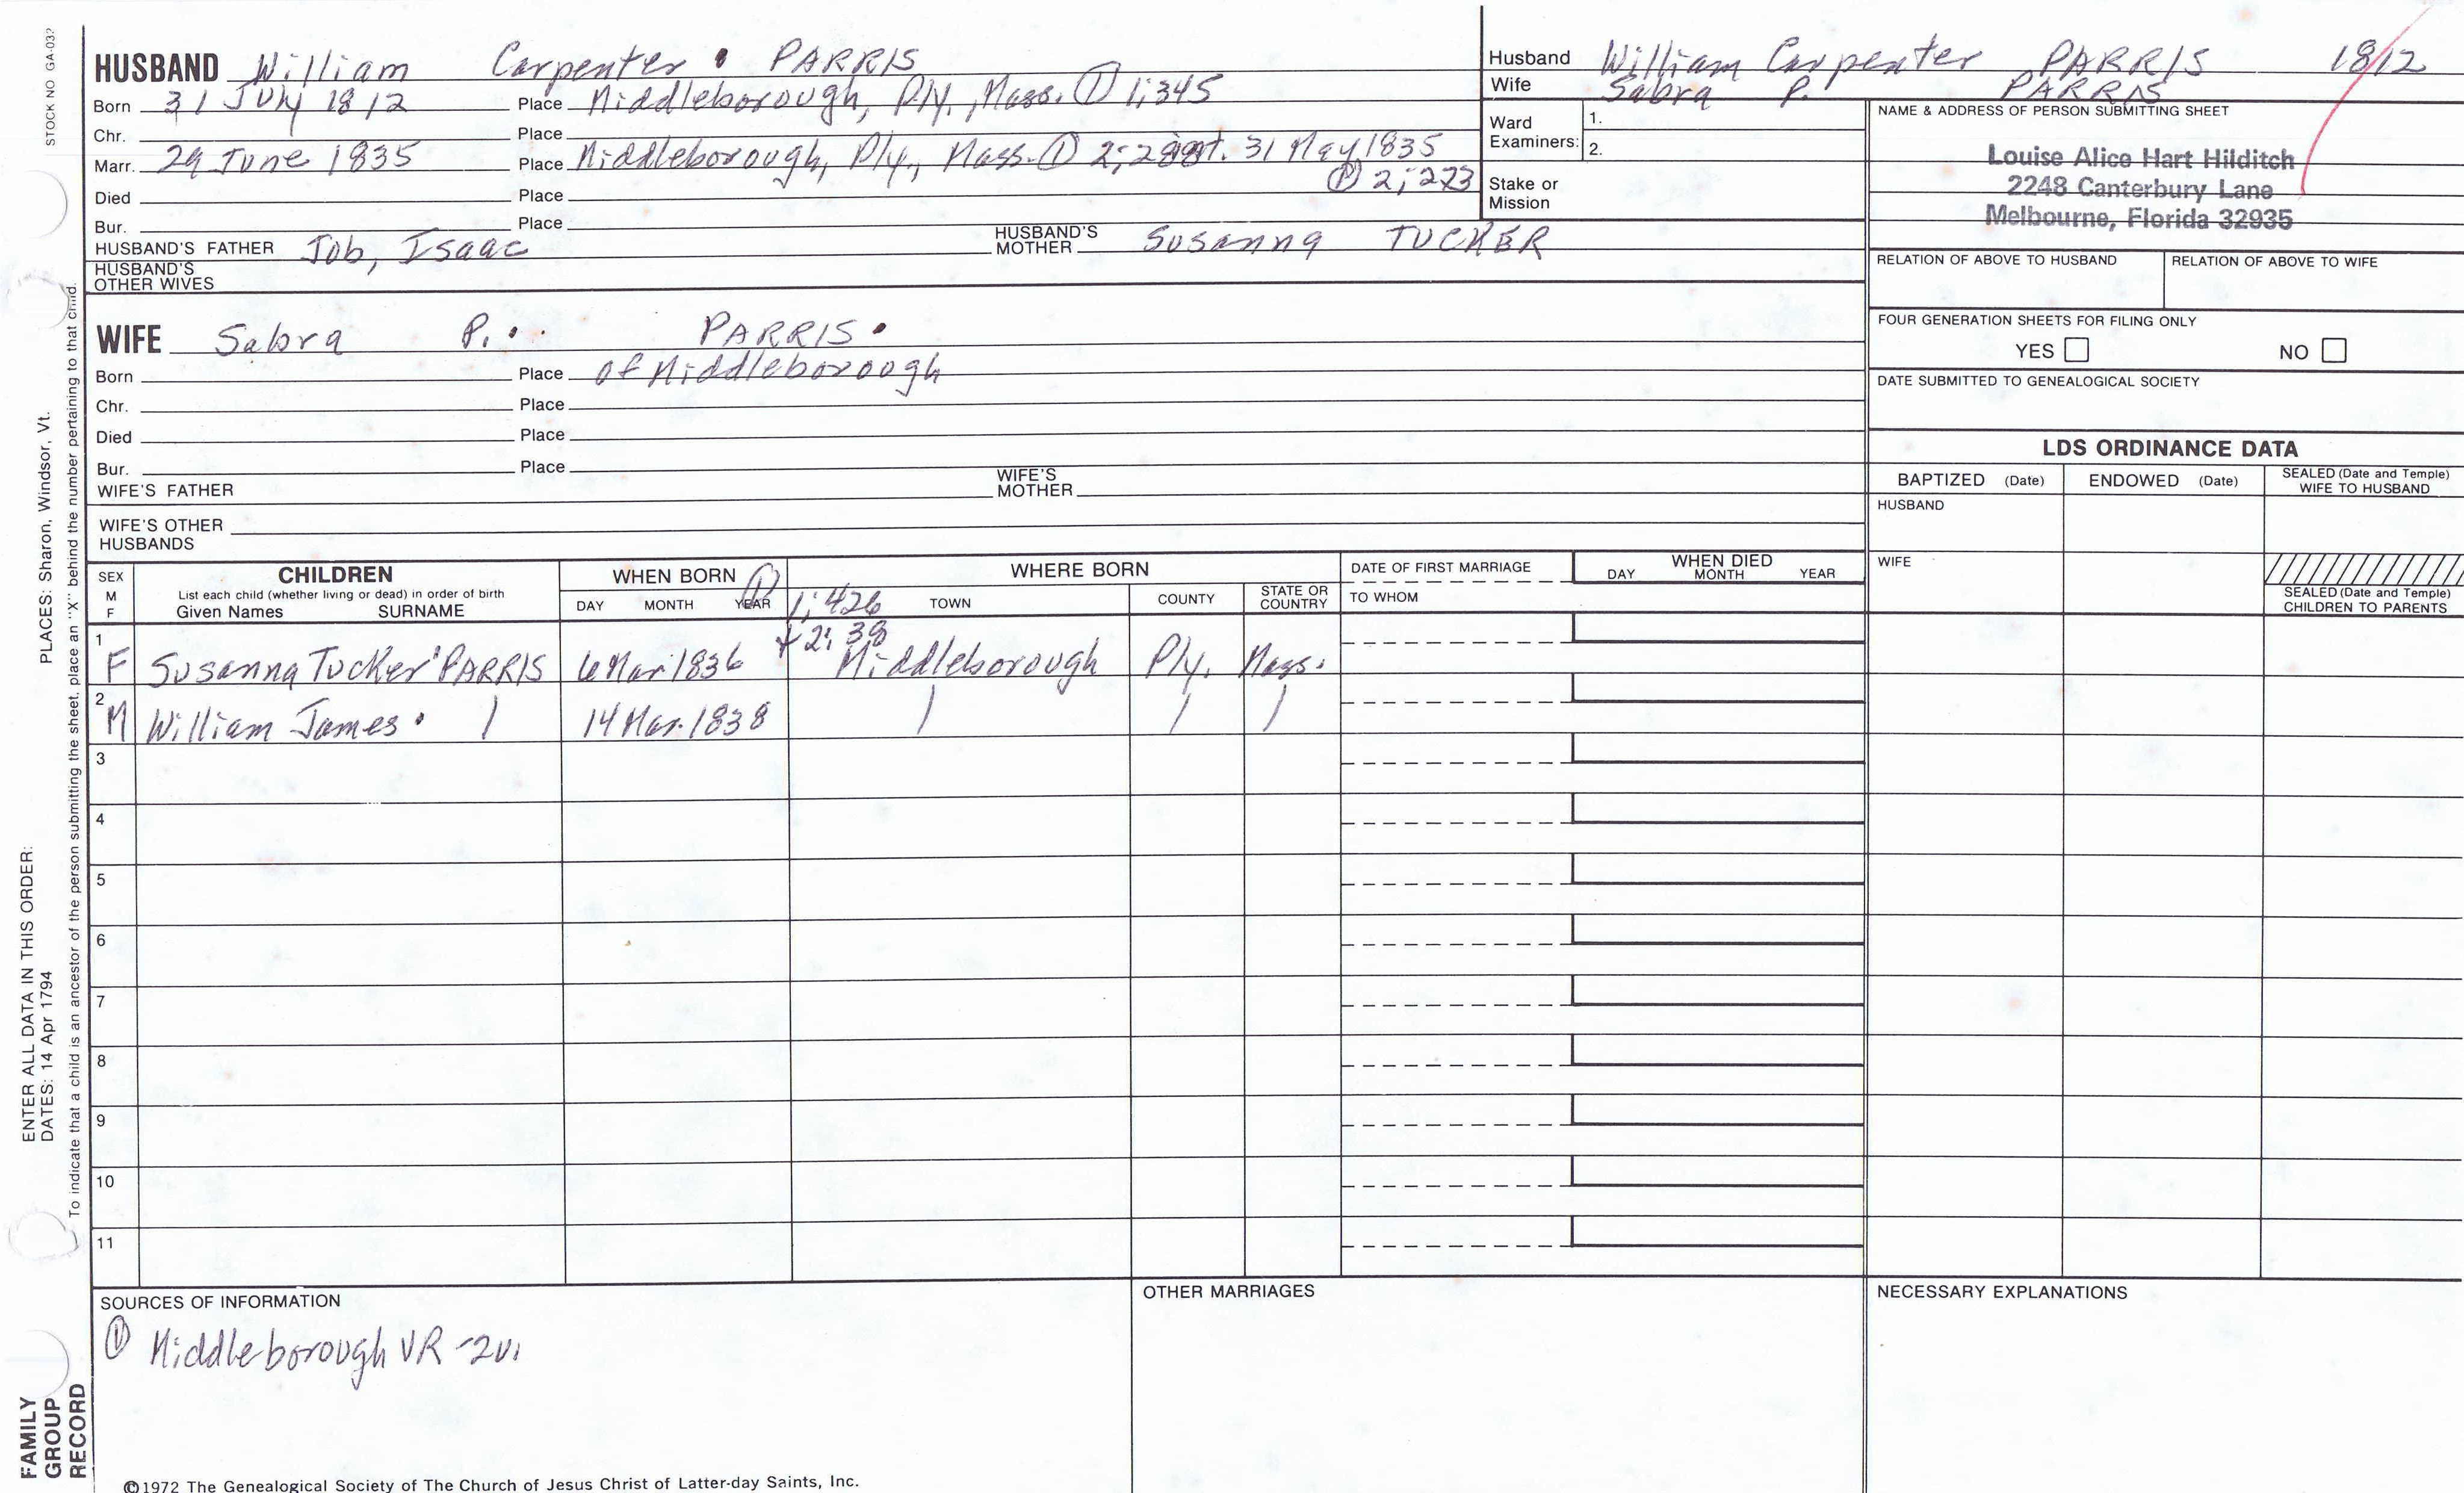 STOCK NO GA-032
HUSBAND William Carpenter PARRIS
Born 31 July 1812 Place Middleborough, Ply., Mass. ① 1;345
Chr. Place
Marr. 29 June 1835 Place Middleborough, Ply., Mass. ① 2; int. 31 May 1835
① 2; 273
Died Place
Bur. Place
HUSBAND'S FATHER Job, Isaac HUSBAND'S MOTHER Susanna TUCKER
HUSBAND'S OTHER WIVES
Husband William Carpenter PARRIS 1812
Wife Sabra P. PARRIS
Ward Examiners: 1.
2.
Stake or Mission
NAME & ADDRESS OF PERSON SUBMITTING SHEET
Louise Alice Hart Hilditch
2248 Canterbury Lane
Melbourne, Florida 32935
RELATION OF ABOVE TO HUSBAND RELATION OF ABOVE TO WIFE
FOUR GENERATION SHEETS FOR FILING ONLY
YES NO
DATE SUBMITTED TO GENEALOGICAL SOCIETY
WIFE Sabra P. PARRIS
Born Place of Middleborough
Chr. Place
Died Place
Bur. Place
WIFE'S FATHER WIFE'S MOTHER
WIFE'S OTHER HUSBANDS
LDS ORDINANCE DATA
BAPTIZED (Date) ENDOWED (Date) SEALED (Date and Temple) WIFE TO HUSBAND
HUSBAND
WIFE
SEALED (Date and Temple) CHILDREN TO PARENTS
SEX M F
CHILDREN
List each child (whether living or dead) in order of birth
Given Names SURNAME
WHEN BORN ①
DAY MONTH YEAR
WHERE BORN
1; 426 TOWN COUNTY STATE OR COUNTRY
+ 2: 38
DATE OF FIRST MARRIAGE
TO WHOM
WHEN DIED
DAY MONTH YEAR
1 F Susanna Tucker PARRIS 6 Mar 1836 Middleborough Ply. Mass.
2 M William James 14 Mar. 1838
3
4
5
6
7
8
9
10
11
SOURCES OF INFORMATION
① Middleborough VR -2v.
OTHER MARRIAGES
NECESSARY EXPLANATIONS
©1972 The Genealogical Society of The Church of Jesus Christ of Latter-day Saints, Inc.
FAMILY
GROUP
RECORD
ENTER ALL DATA IN THIS ORDER:
DATES: 14 Apr 1794 PLACES: Sharon, Windsor, Vt.
To indicate that a child is an ancestor of the person submitting the sheet, place an "X" behind the number pertaining to that child.